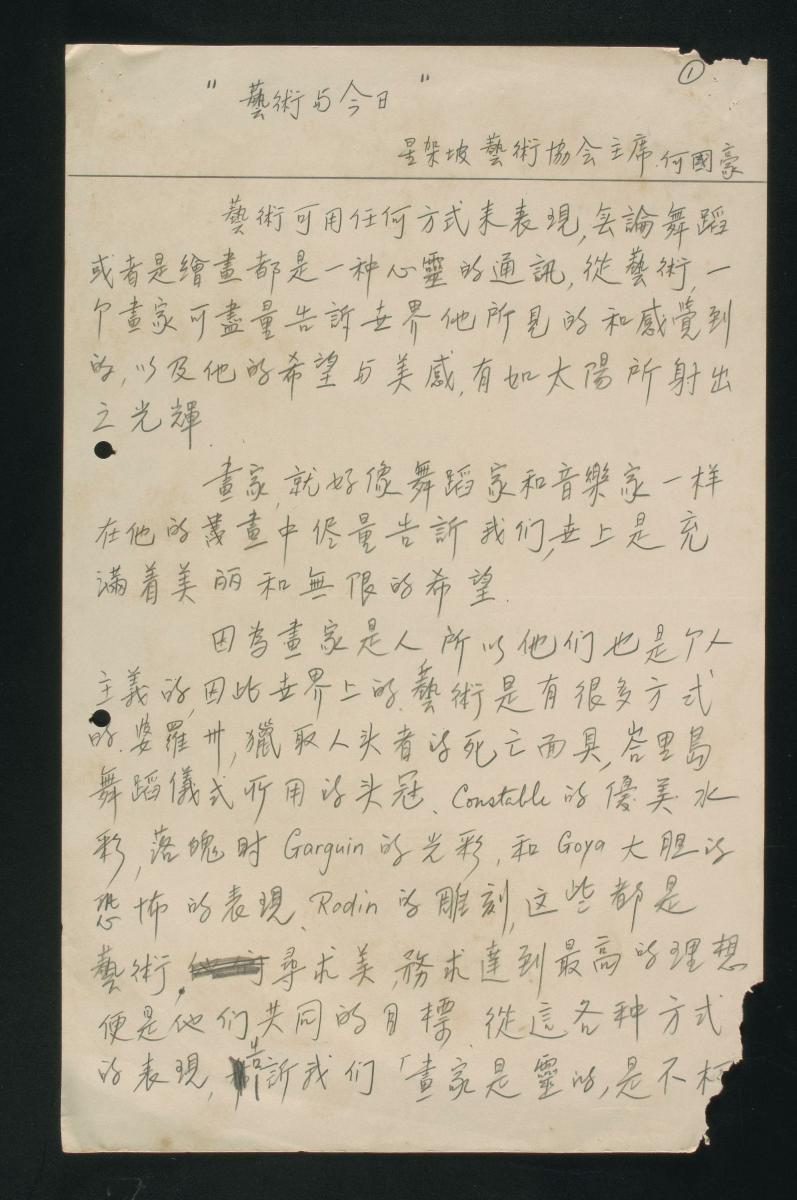 ①
" 藝術与今日 "
星架坡藝術協会主席.何國豪
藝術可用任何方式来表現,无論舞蹈
或者是繪畫都是一种心靈的通訊,從藝術,一
个畫家可盡量告訴世界他所見的和感覺到
的,以及他的希望与美感,有如太陽所射出
之光輝.
畫家,就好像舞蹈家和音樂家一样
在他的畫中侭量告訴我们,世上是充
滿着美丽和無限的希望.
因為畫家是人所以他们也是个人
主義的,因此世界上的藝術是有很多方式
的.婆羅卅,獵取人头者的死亡面具,峇里島
舞蹈儀式所用的头冠、Constable的優美水
彩,落魄时Garguin的光彩,和Goya大胆的
恐怖的表現、Rodin的雕刻,这些都是
藝術.尋求美,務求達到最高的理想
便是他们共同的目標.從這各种方式
的表現,告訴我们「畫家是靈的,是不朽